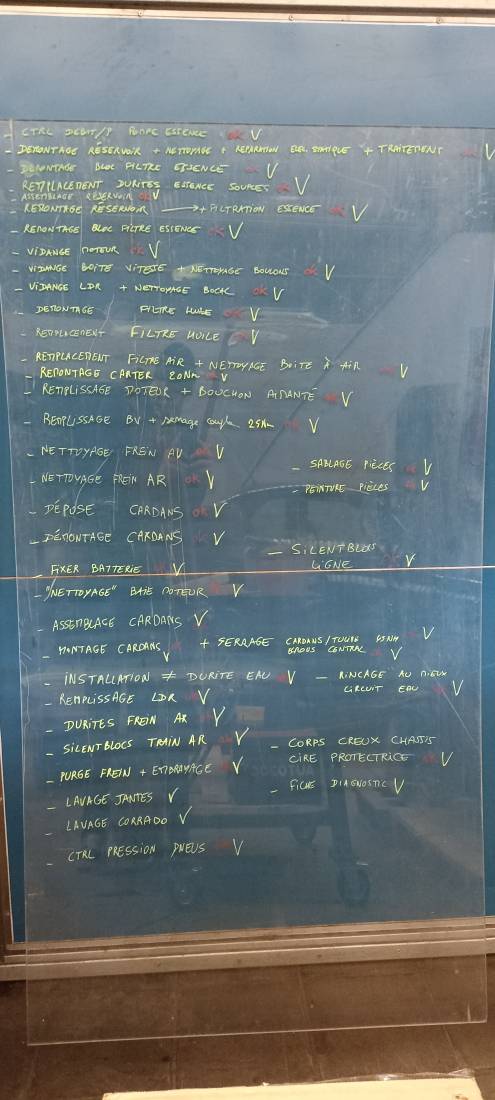 - CTRL DEBIT/P POMPE ESSENCE ok V
- DEMONTAGE RÉSERVOIR + NETTOYAGE + REPARATION ELEC. STATIQUE + TRAITEMENT ok V
- DEMONTAGE BLOC FILTRE ESSENCE ok V
- REMPLACEMENT DURITES ESSENCE SOUPLES ok V
ASSEMBLAGE RÉSERVOIR ok V
- REMONTAGE RÉSERVOIR → + FILTRATION ESSENCE ok V
- REMONTAGE BLOC FILTRE ESSENCE ok V
- VIDANGE MOTEUR ok V
- VIDANGE BOITE VITESSE + NETTOYAGE BOULONS ok V
- VIDANGE LDR + NETTOYAGE BOCAL ok V
- DEMONTAGE FILTRE HUILE ok V
- REMPLACEMENT FILTRE HUILE ok V
- REMPLACEMENT FILTRE AIR + NETTOYAGE BOITE À AIR ok V
- REMONTAGE CARTER 20Nm ok V
- REMPLISSAGE MOTEUR + BOUCHON AIMANTÉ ok V
- REMPLISSAGE BV + serrage couple 25Nm ok V
- NETTOYAGE FREIN AV ok V
- NETTOYAGE FREIN AR ok V
- SABLAGE PIÈCES ok V
- PEINTURE PIÈCES ok V
- DÉPOSE CARDANS ok V
- DÉMONTAGE CARDANS ok V
- SILENTBLOCS LIGNE ok V
- FIXER BATTERIE V
- "NETTOYAGE" BAIE MOTEUR V
- ASSEMBLAGE CARDANS V
- MONTAGE CARDANS V + SERRAGE CARDANS/TULIPE V
ECROUS CENTRAL V
- INSTALLATION ≠ DURITE EAU ok V
- RINCAGE AU MIEUX
CIRCUIT EAU V
- REMPLISSAGE LDR ok V
- DURITES FREIN AR V
- SILENTBLOCS TRAIN AR ok V
- PURGE FREIN + EMBRAYAGE ok V
- CORPS CREUX CHASSIS
CIRE PROTECTRICE ok V
- FICHE DIAGNOSTIC V
- LAVAGE JANTES V
- LAVAGE CORRADO V
- CTRL PRESSION PNEUS ok V